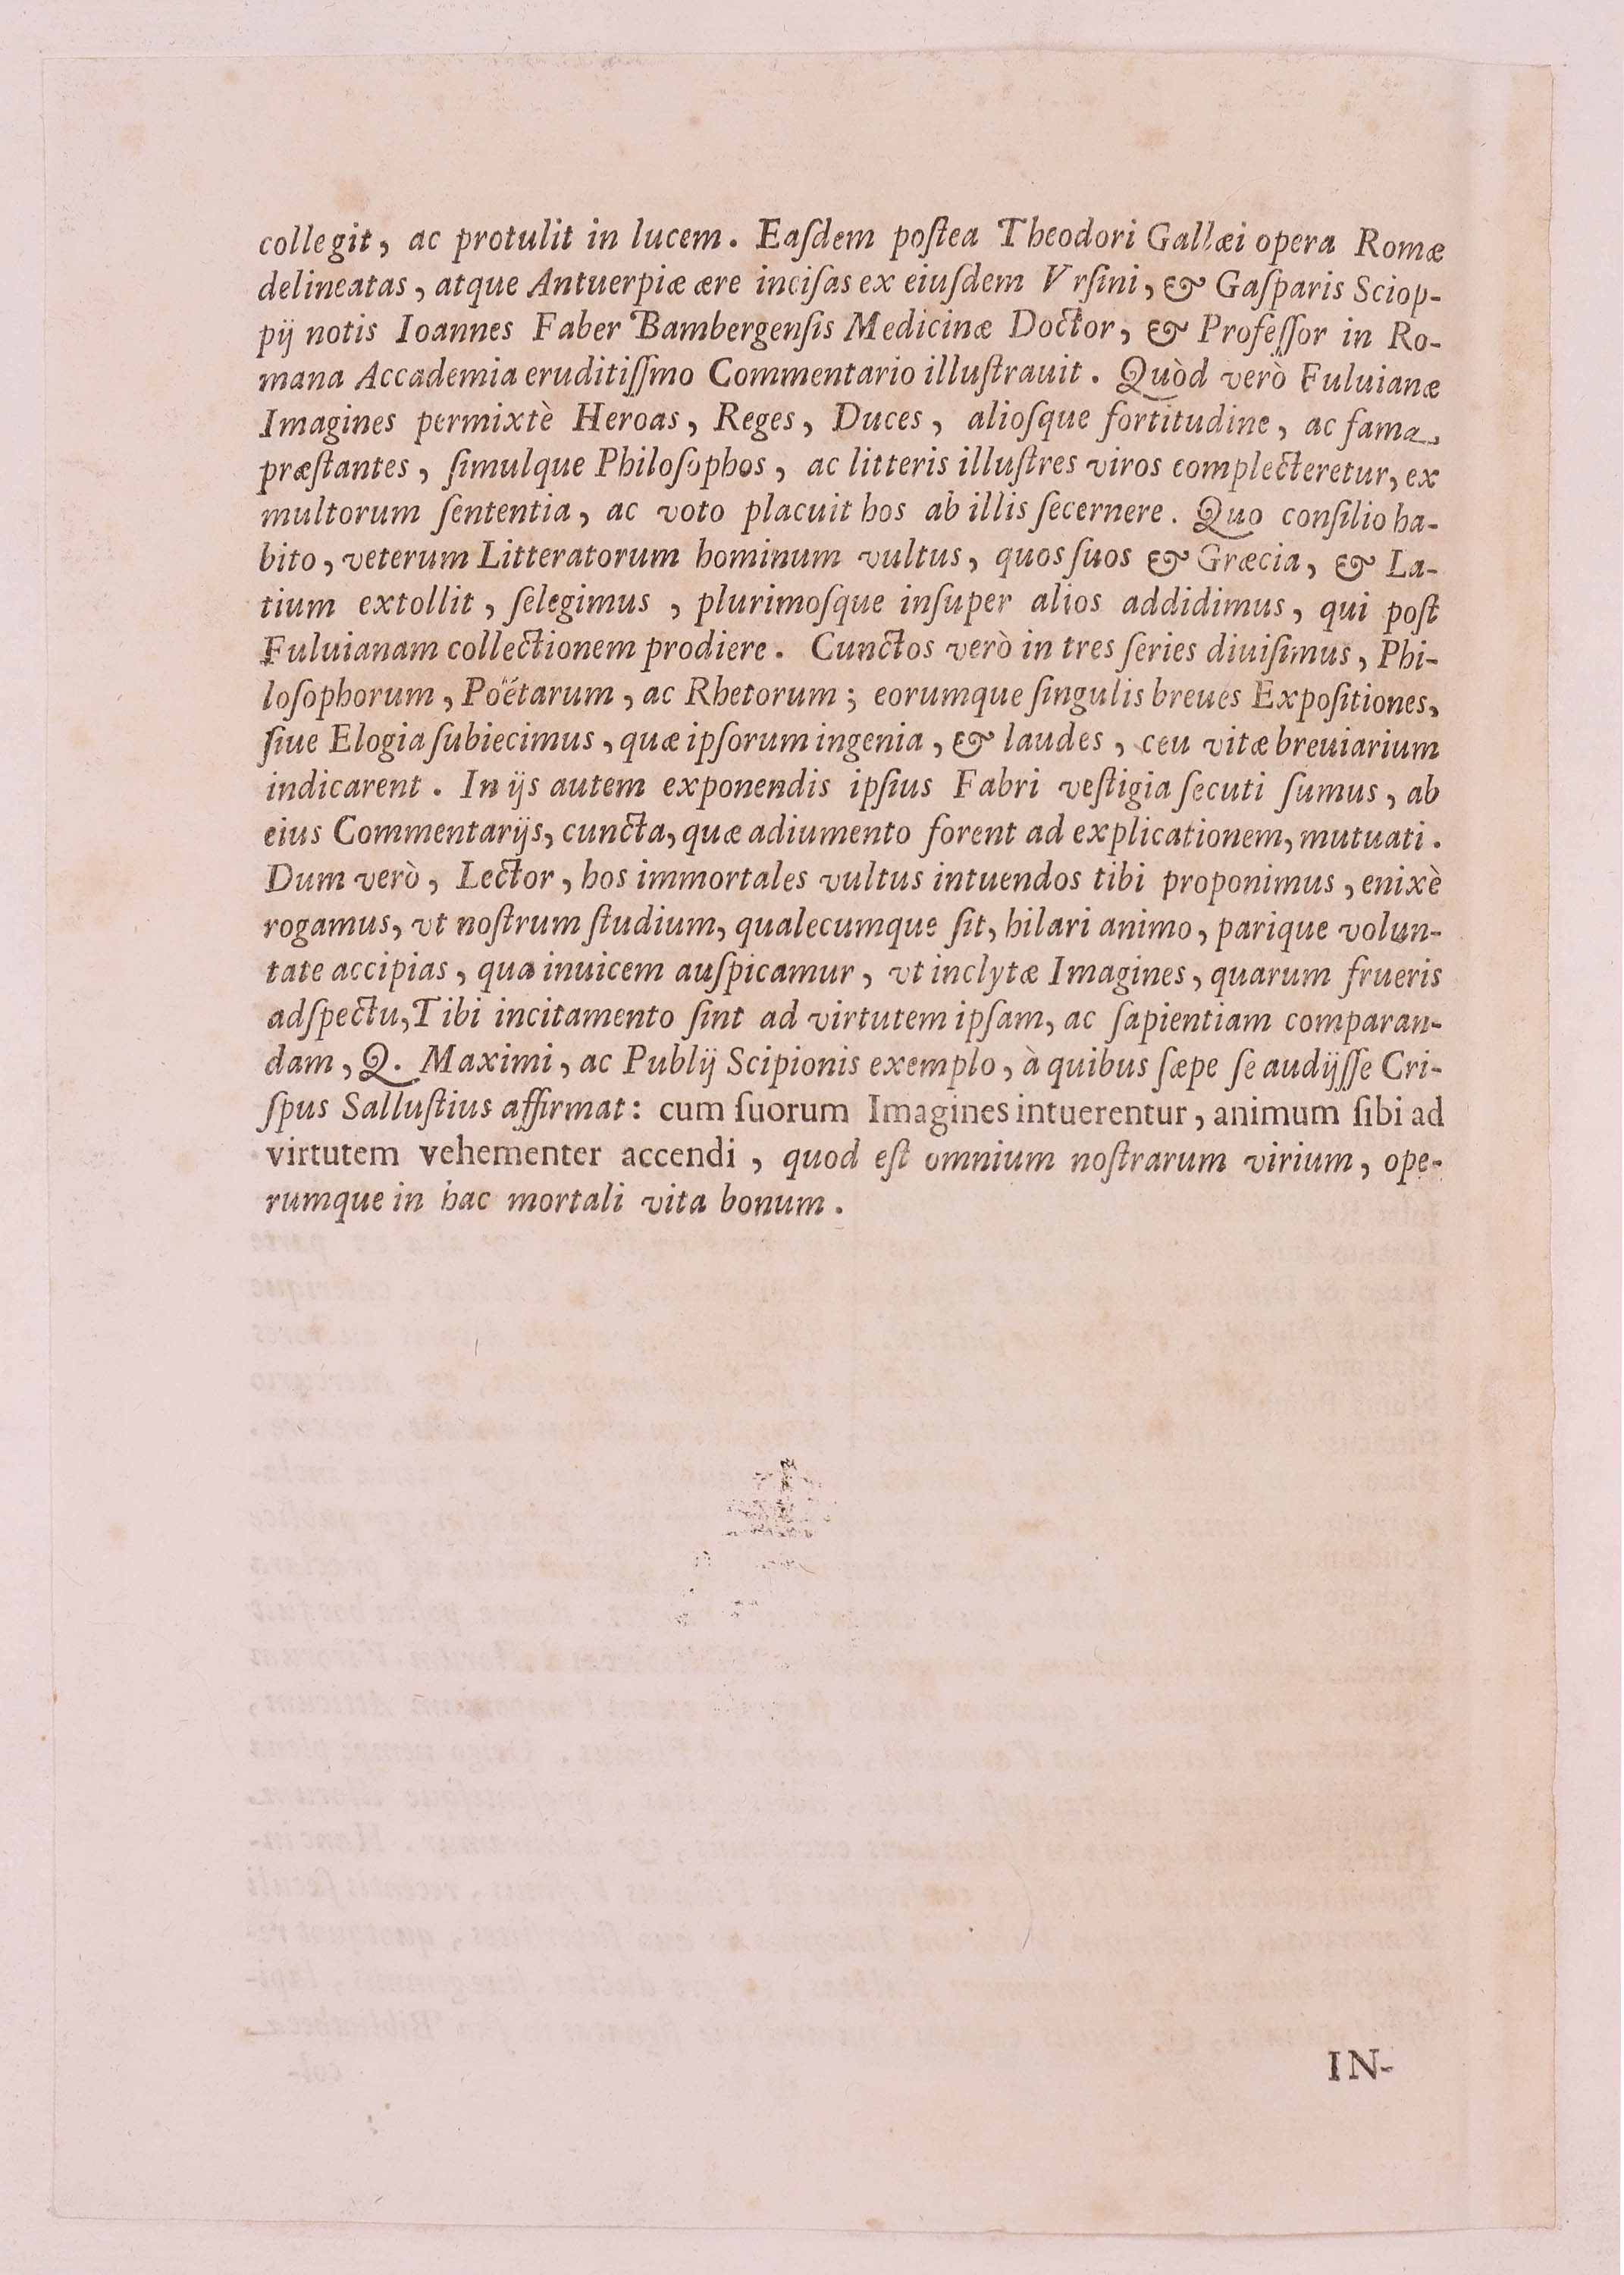 collegit, ac protulit in lucem. Eaſdem poſtea Theodori Gallæi opera Romæ
delineatas, atque Antuerpiæ ære inciſas ex eiuſdem Vrſini, & Gaſparis Sciop-
pij notis Ioannes Faber Bambergenſis Medicinæ Doctor, & Profeſſor in Ro-
mana Accademia eruditiſſmo Commentario illuſtrauit. Quòd verò Fuluianæ
Imagines permixtè Heroas, Reges, Duces, alioſque fortitudine, ac fama,
præſtantes, ſimulque Philoſophos, ac litteris illuſtres viros complecteretur, ex
multorum ſententia, ac voto placuit hos ab illis ſecernere. Quo conſilio ha-
bito, veterum Litteratorum hominum vultus, quos ſuos & Græcia, & La-
tium extollit, ſelegimus, plurimoſque inſuper alios addidimus, qui poſt
Fuluianam collectionem prodiere. Cunctos verò in tres ſeries diuiſimus, Phi-
loſophorum, Poëtarum, ac Rhetorum; eorumque ſingulis breues Expoſitiones,
ſiue Elogia ſubiecimus, quæ ipſorum ingenia, & laudes, ceu vitæ breuiarium
indicarent. In ijs autem exponendis ipſius Fabri veſtigia ſecuti ſumus, ab
eius Commentarijs, cuncta, quæ adiumento forent ad explicationem, mutuati.
Dum verò, Lector, hos immortales vultus intuendos tibi proponimus, enixè
rogamus, vt noſtrum ſtudium, qualecumque ſit, hilari animo, parique volun-
tate accipias, qua inuicem auſpicamur, vt inclytæ Imagines, quarum frueris
adſpectu, Tibi incitamento ſint ad virtutem ipſam, ac ſapientiam comparan-
dam, Q. Maximi, ac Publij Scipionis exemplo, à quibus ſæpe ſe audijſſe Cri-
ſpus Salluſtius affirmat: cum ſuorum Imagines intuerentur, animum ſibi ad
virtutem vehementer accendi, quod eſt omnium noſtrarum virium, ope-
rumque in hac mortali vita bonum.
IN-